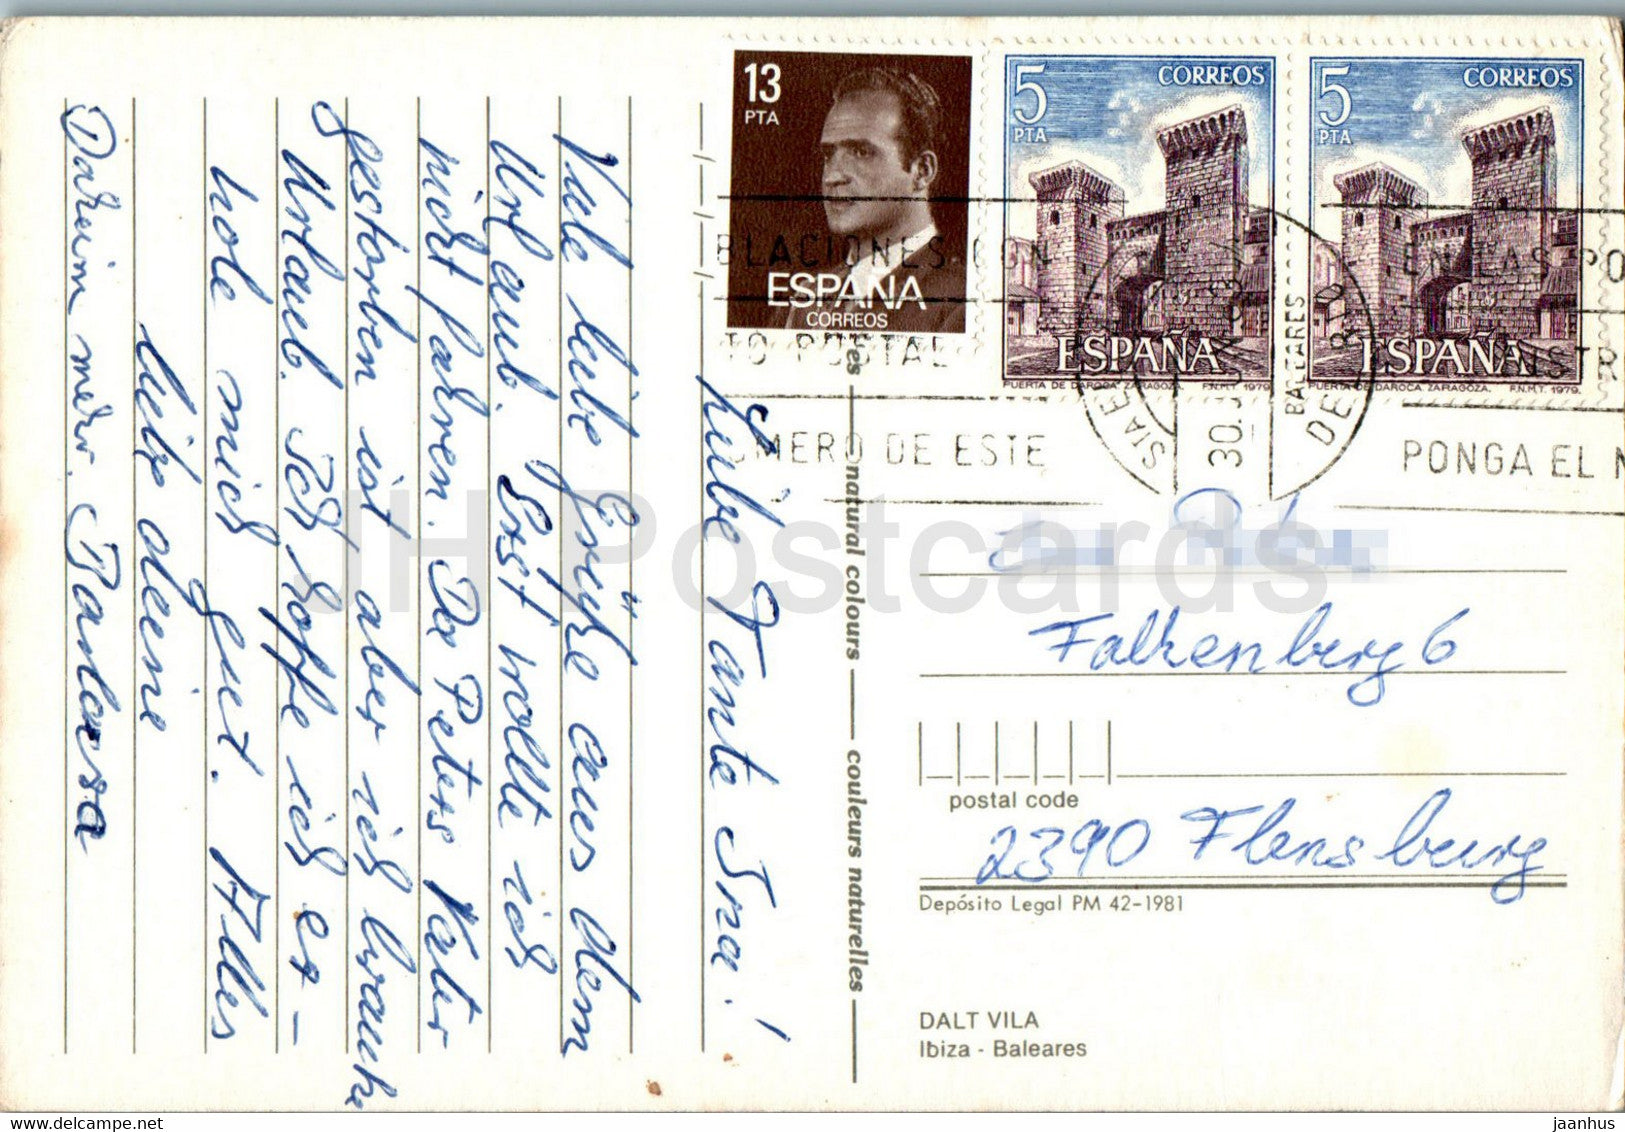 13
PTA
ESPAÑA
CORREOS
5
PTA
CORREOS
ESPAÑA
PUERTA DE DAROCA ZARAGOZA. F.N.M.T. 1979
5
PTA
CORREOS
ESPAÑA
PUERTA DE DAROCA ZARAGOZA. F.N.M.T. 1979
BLACIONES CON
TO POSTAL
MERO DE ESTE
BALEARES
30.
EN LAS PO
NSTR
PONGA EL N
Liebe Tante Ina!
Viele liebe Grüße aus dem
Urlaub. Erst wollte ich
nicht fahren. Da Peters Vater
gestorben ist aber ich brauche
Urlaub. Ich hoffe ich er-
hole mich gut. Alles
liebe deine
Daheim mehr. Barbara
natural colours — couleurs naturelles
Falkenberg 6
postal code
2390 Flensburg
Depósito Legal PM 42-1981
DALT VILA
Ibiza - Baleares
JH Postcards
jaanhus